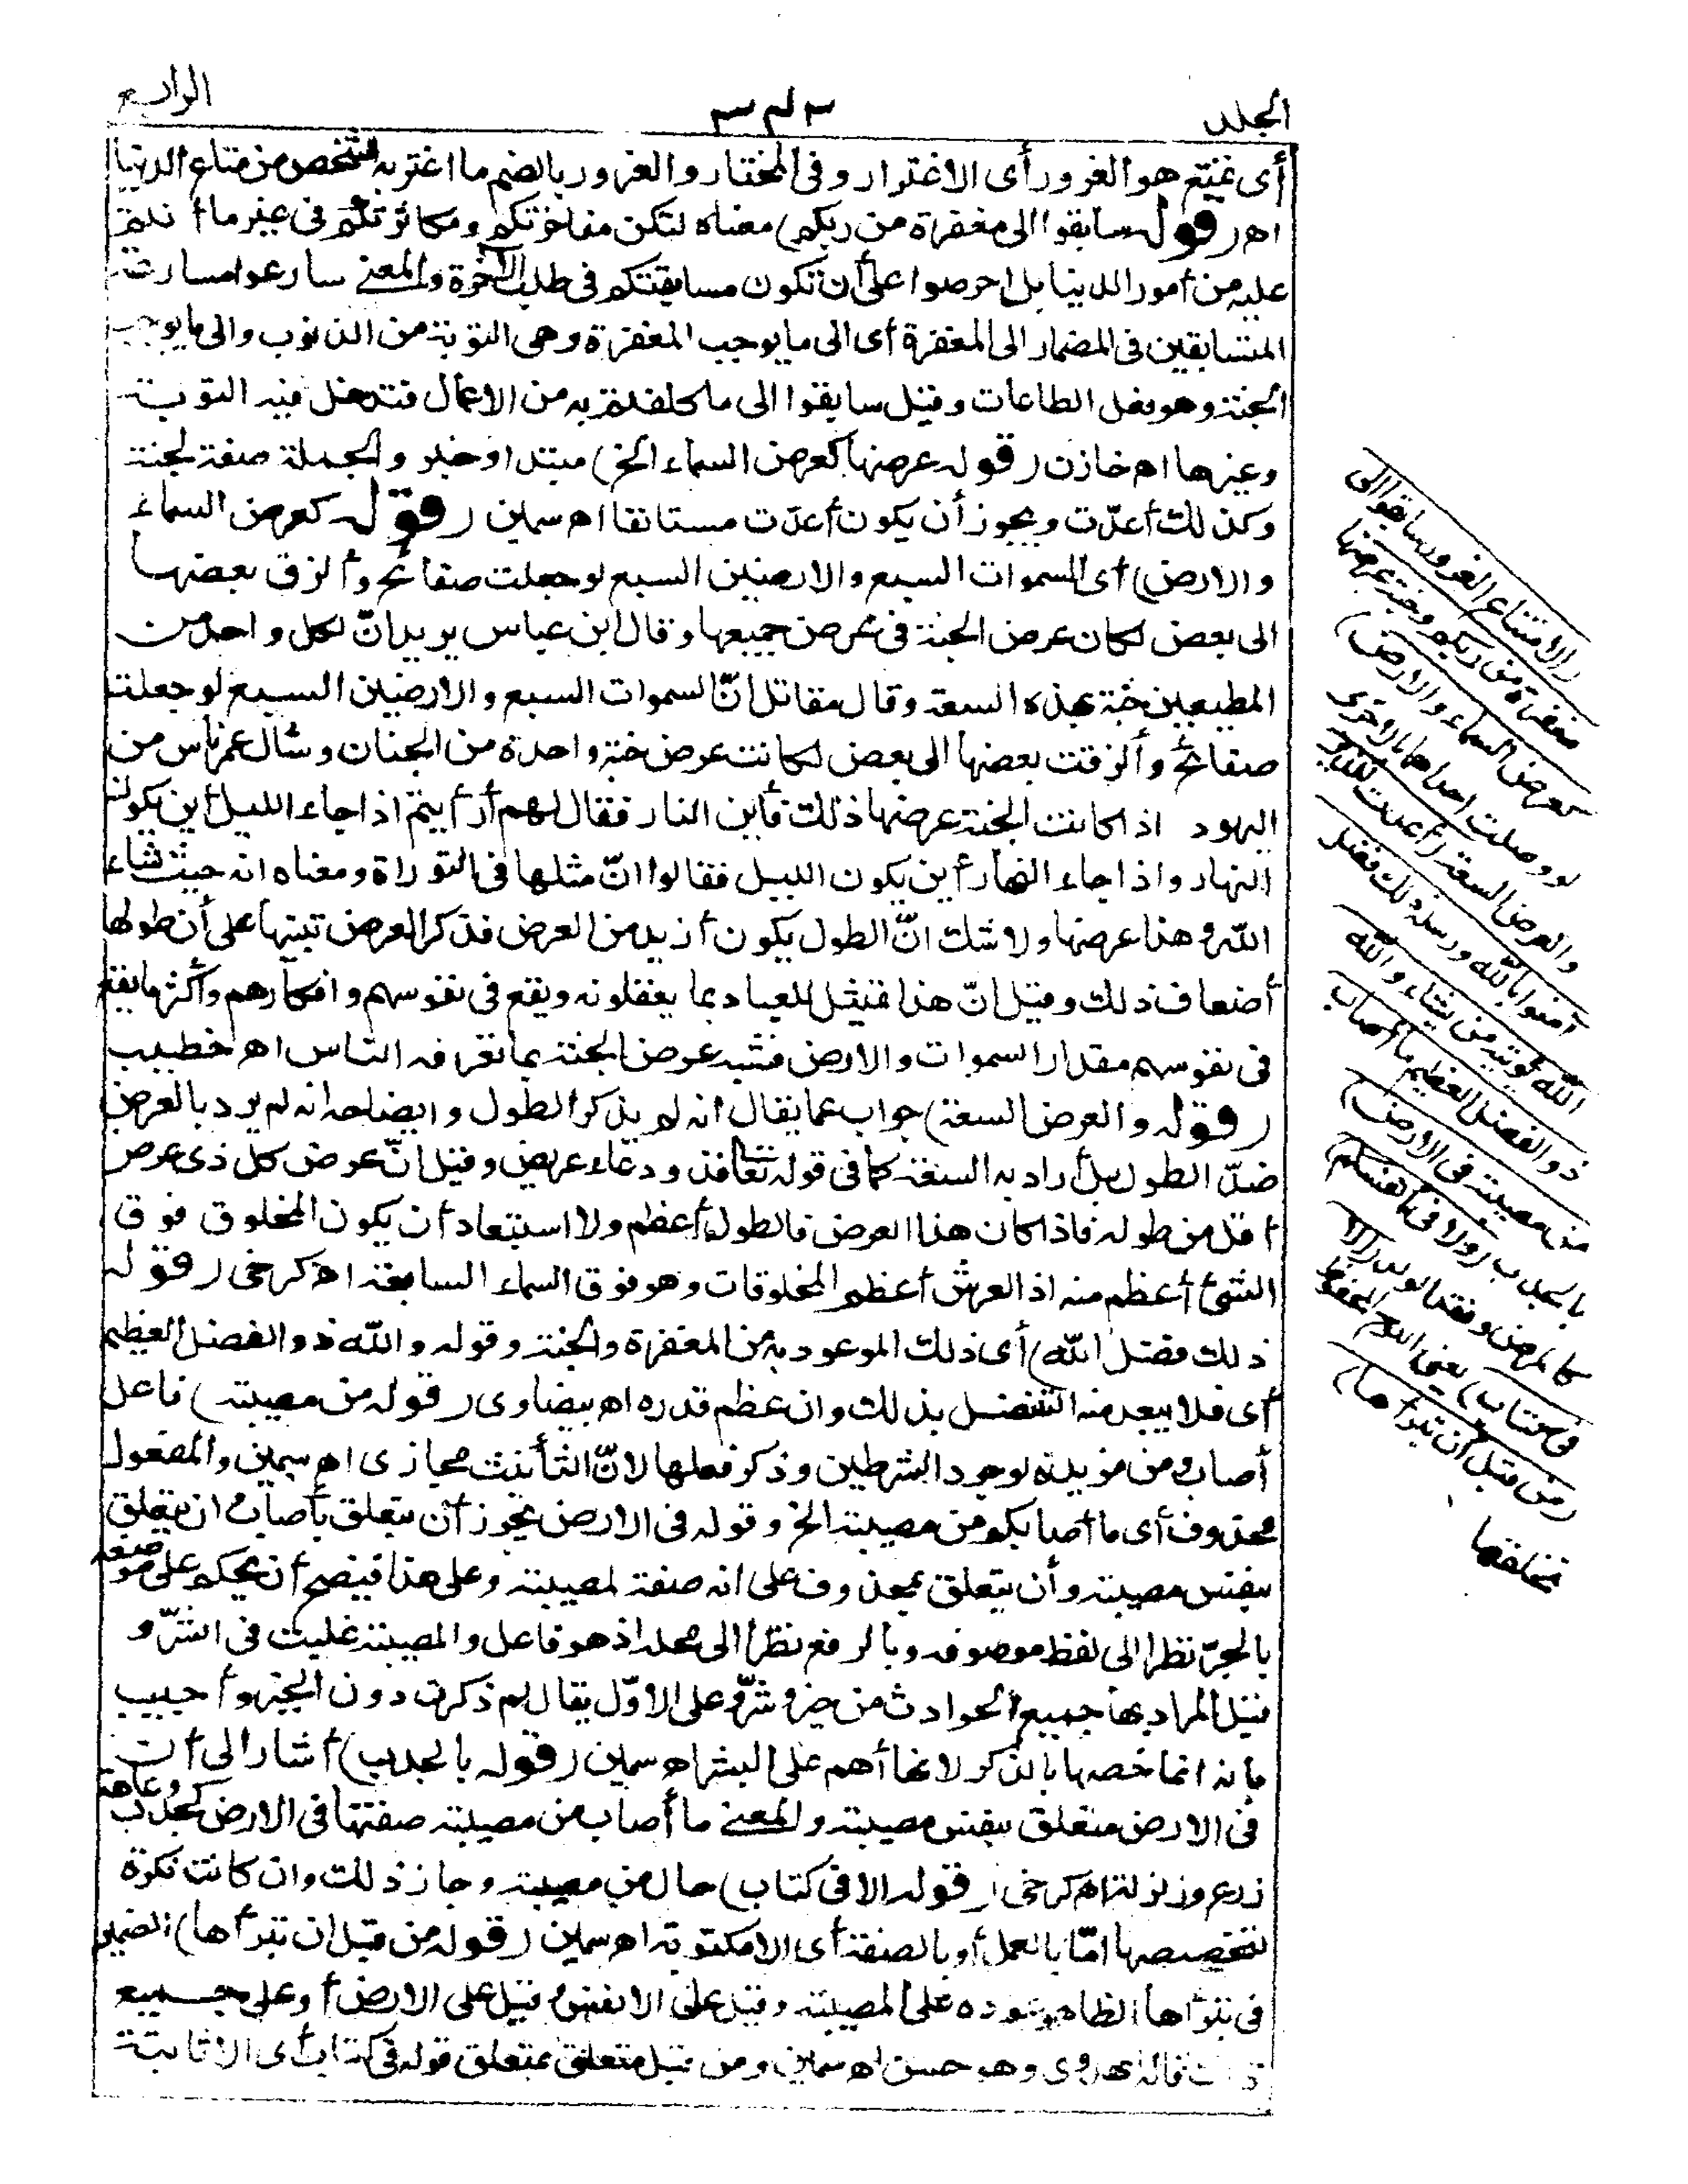 الجلد
٣٤٣
الرابع
أى تمتع هو الغرور أى الاغترار وفى المختار والغرور بالضم ما اغتر به الشخص من متاع الدنيا
اه (قوله سابقوا الى مغفرة من ربكم) معناه لتكن مفاخرتكم ومكاثرتكم فى غير ما أنتم
عليه من أمور الدنيا بل احرصوا على أن تكون مسابقتكم فى طلب الآخرة والمعنى سارعوا مسارعة
المتسابقين فى المضمار الى المغفرة أى الى ما يوجب المغفرة وهى التوبة من الذنوب والى ما يوجب
الجنة وهو فعل الطاعات وقيل سابقوا الى ما كلفتم به من الاعمال فتدخل فيه التوبة
وغيرها اه خازن (قوله عرضها كعرض السماء الخ) مبتدا وخبر والجملة صفة لجنة
وكذلك أعدّت ويجوز أن يكون أعدّت مستانفا اه سمين (قوله كعرض السماء
والارض) أى السموات السبع والارضين السبع لو جعلت صفائح وألزق بعضها
الى بعض لكان عرض الجنة فى عرض جميعها وقال ابن عباس يريد انّ لكل واحد من
المطيعين جنة بهذه السعة وقال مقاتل انّ السموات السبع والارضين السبع لو جعلت
صفائح وألزقت بعضها الى بعض لكانت عرض جنة واحدة من الجنان وسأل عمر ناس من
اليهود اذا كانت الجنة عرضها ذلك فأين النار فقال لهم أرأيتم اذا جاء الليل أين يكون
النهار واذا جاء النهار أين يكون الليل فقالوا انّ مثلها فى التوراة ومعناه انه حيث شاء
الله وهذا عرضها ولا شك انّ الطول يكون أزيد من العرض فذكر العرض تنبيها على أن طولها
أضعاف ذلك وقيل انّ هذا تمثيل للعباد بما يعقلونه ويقع فى نفوسهم وافكارهم وأكثر ما يقع
فى نفوسهم مقدار السموات والارض فشبه عرض الجنة بما تعرافه الناس اه خطيب
(قوله والعرض السعة) جواب عما يقال انه لم يذكر الطول وايضاحه انه لم يرد بالعرض
ضدّ الطول بل أراد به السعة كما فى قوله تعالى فذو دعاء عريض وقيل انّ عرض كل ذى عرض
أقل من طوله فاذا كان هذا العرض فالطول أعظم ولا استبعاد أن يكون المخلوق فوق
الشئ أعظم منه اذ العرش أعظم المخلوقات وهو فوق السماء السابعة اه كرخى (قوله
ذلك فضل الله) أى ذلك الموعود به من المغفرة والجنة وقوله والله ذو الفضل العظيم
أى فلا يبعد منه التفضل بذلك وان عظم قدره اه بيضاوى (قوله من مصيبة) فاعل
أصاب ومن مزيدة لوجود الشرطين وذكر فعلها لانّ التأنيث مجازى اه سمين والمفعول
محذوف أى ما أصابكم من مصيبة الخ وقوله فى الارض يجوز أن يتعلق بأصاب وان يتعلق
بنفس مصيبة وأن يتعلق بمحذوف على انه صفة لمصيبة وعلى هذا فيصح أن يحكم على موضعه
بالجرّ نظرا الى لفظ موصوفه وبالرفع نظرا الى محله اذ هو فاعل والمصيبة غلبت فى الشرّ و
قيل المراد بها جميع الحوادث من خير وشرّ وعلى الاوّل يقال لم ذكرت دون الخير وأجيب
بأنه انما خصها بالذكر لانها أهم على البشر اه سمين (قوله بالجدب) أشار الى أن
فى الارض متعلق بنفس مصيبة والمعنى ما أصاب من مصيبة صفتها فى الارض كجدب وعاهة
زرع وزلزلة اه كرخى (قوله الا فى كتاب) حال من مصيبة وجاز ذلك وان كانت نكرة
لتخصيصها امّا بالعمل أو بالصفة أى الا مكتوبة اه سمين (قوله من قبل ان نبرأها) الضمير
فى نبرأها الظاهر عوده على المصيبة وقيل على الانفس وقيل على الارض أو على جميع
ذلك قاله المهدوى وهو حسن اه سمين ومن قبل متعلق بمتعلق قوله فى كتاب أى الا ثابتة
(الا متاع الغرور سابقوا الى
مغفرة من ربكم وجنة عرضها
كعرض السماء والارض)
لو وصلت احداهما بالاخرى
والعرض السعة (أعدت للذين
آمنوا بالله ورسله ذلك فضل
الله يؤتيه من يشاء والله
ذو الفضل العظيم ما أصاب
من مصيبة فى الارض)
بالجدب (ولا فى أنفسكم)
كالمرض وفقد الولد (الا
فى كتاب) يعنى اللوح المحفوظ
(من قبل أن نبرأها)
نخلقها